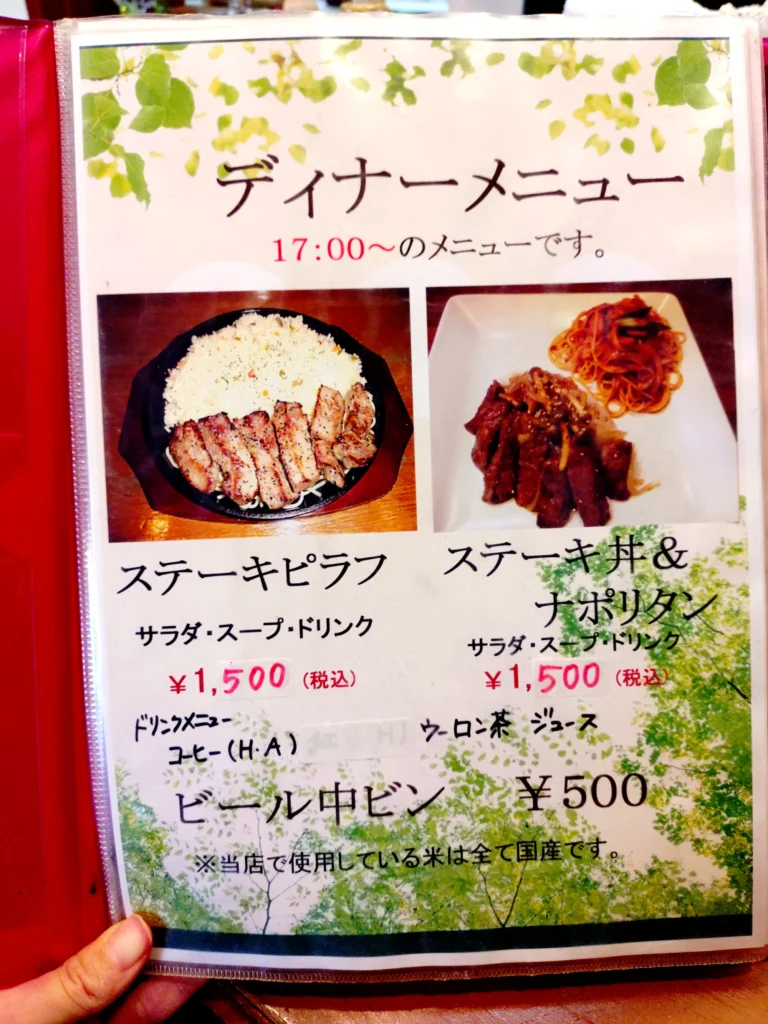 ディナーメニュー
17:00～のメニューです。
ステーキピラフ
サラダ・スープ・ドリンク
￥1,500（税込）
ステーキ丼＆
ナポリタン
サラダ・スープ・ドリンク
￥1,500（税込）
ドリンクメニュー
コーヒー(H・A)
ウーロン茶 ジュース
ビール中ビン ￥500
※当店で使用している米は全て国産です。